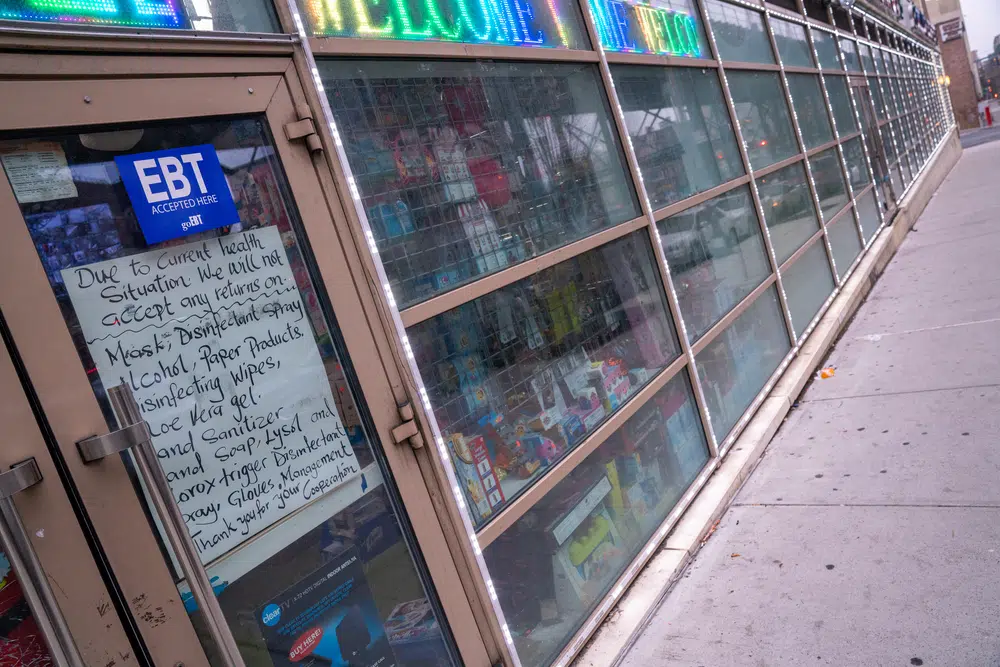 WELCOME
WELCOME
EBT
ACCEPTED HERE
goEBT
Due to Current health
Situation. We will not
accept any returns on..
Mask, Disinfectant Spray
lcohol, Paper Products
isinfecting Wipes,
loe Vera gel.
and Sanitizer
and Soap, Lysol and
orox trigger Disinfectant
pray, Gloves, Management
Thank you for your Cooperation
clear TV
BUY HERE!